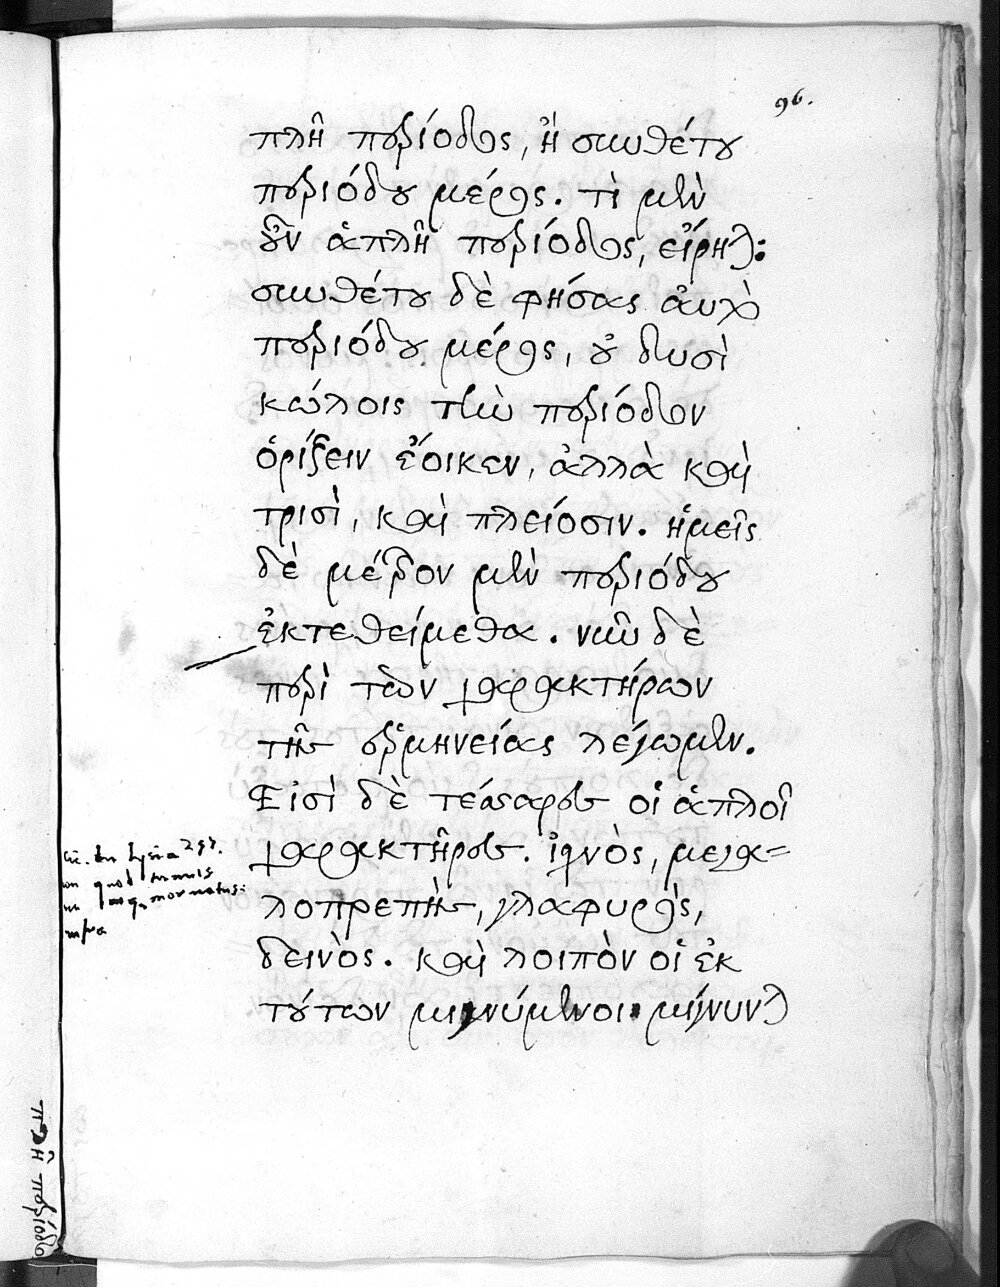 96.
πλῆ περίοδος, ἢ συνθέτου
περιόδου μέρος. τί μὲν
οὖν ἁπλῆ περίοδος, εἴρηται:
συνθέτου δὲ φήσας αὐτὸ
περιόδου μέρος, οὐ δυσὶ
κώλοις τὴν περίοδον
ὁρίζειν ἔοικεν, ἀλλὰ καὶ
τρισὶ, καὶ πλείοσιν. ἡμεῖς
δὲ μέτρον μὲν περιόδου
ἐκτεθείμεθα. νῦν δὲ
περὶ τῶν χαρακτήρων
τῆς ἑρμηνείας λέγωμεν.
Εἰσὶ δὲ τέσσαρες οἱ ἁπλοῖ
χαρακτῆρες. ἰσχνὸς, μεγα=
λοπρεπὴς, γλαφυρὸς,
δεινὸς. καὶ λοιπὸν οἱ ἐκ
τούτων μιγνύμενοι. μίγνυνται
πλῆ περίοδος